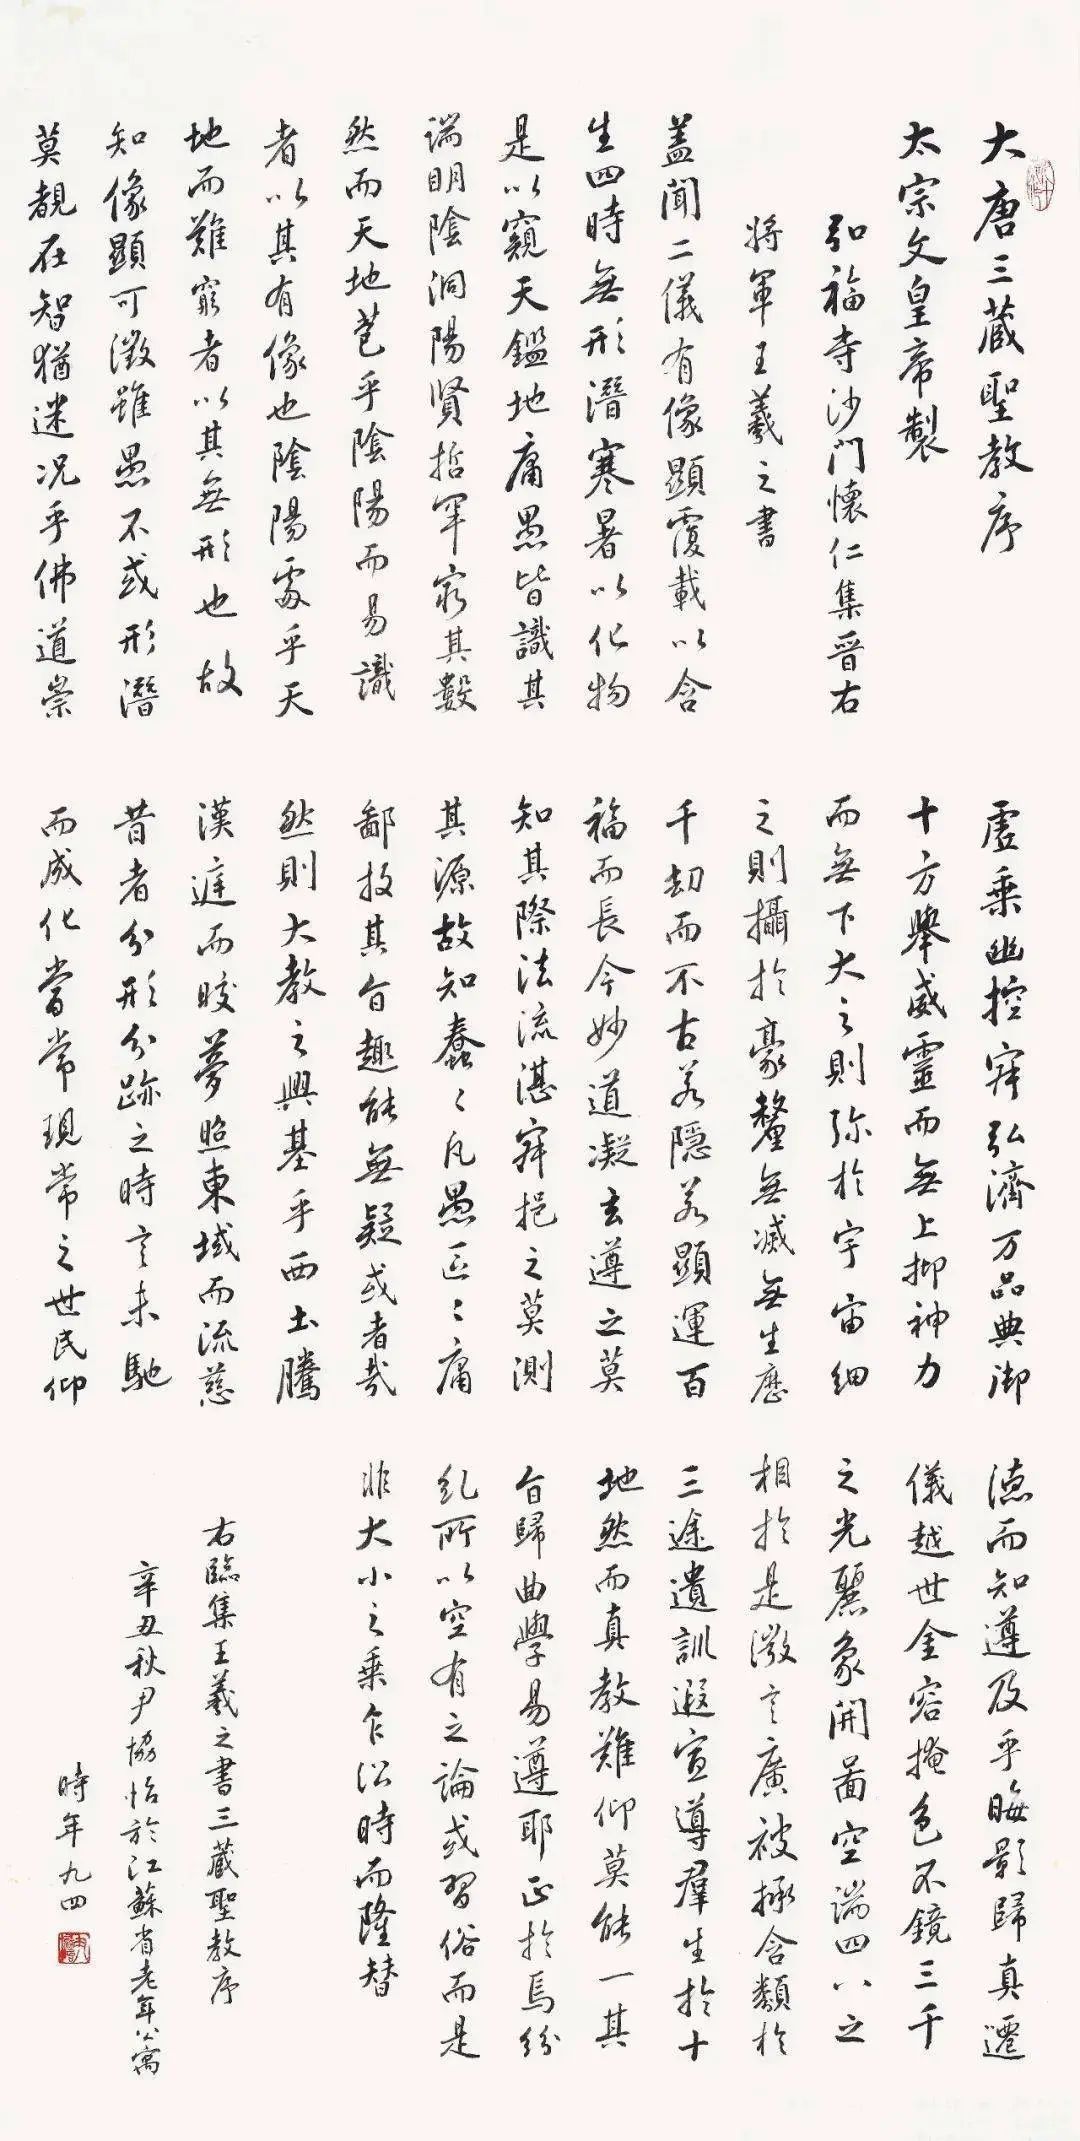 大唐三藏聖教序
太宗文皇帝製
弘福寺沙門懷仁集晉右
將軍王羲之書
蓋聞二儀有像顯覆載以含
生四時無形潛寒暑以化物
是以窺天鑑地庸愚皆識其
端明陰洞陽賢哲罕窮其數
然而天地苞乎陰陽而易識
者以其有像也陰陽處乎天
地而難窮者以其無形也故
知像顯可徵雖愚不惑形潛
莫覩在智猶迷況乎佛道崇
虛乘幽控寂弘濟万品典御
十方舉威靈而無上抑神力
而無下大之則弥於宇宙細
之則攝於豪釐無滅無生歷
千劫而不古若隱若顯運百
福而長今妙道凝玄遵之莫
知其際法流湛寂挹之莫測
其源故知蠢〻凡愚區〻庸
鄙投其旨趣能無疑或者哉
然則大教之興基乎西土騰
漢庭而皎夢照東域而流慈
昔者分形分跡之時言未馳
而成化當常現常之世民仰
德而知遵及乎晦影歸真遷
儀越世金容掩色不鏡三千
之光麗象開圖空端四八之
相於是微言廣被拯含類於
三途遺訓遐宣導群生於十
地然而真教難仰莫能一其
旨歸曲學易遵耶正於焉紛
糺所以空有之論或習俗而是
非大小之乘乍沿時而隆替
右臨集王羲之書三藏聖教序
辛丑秋尹協怡於江蘇省老年公寓
時年九四